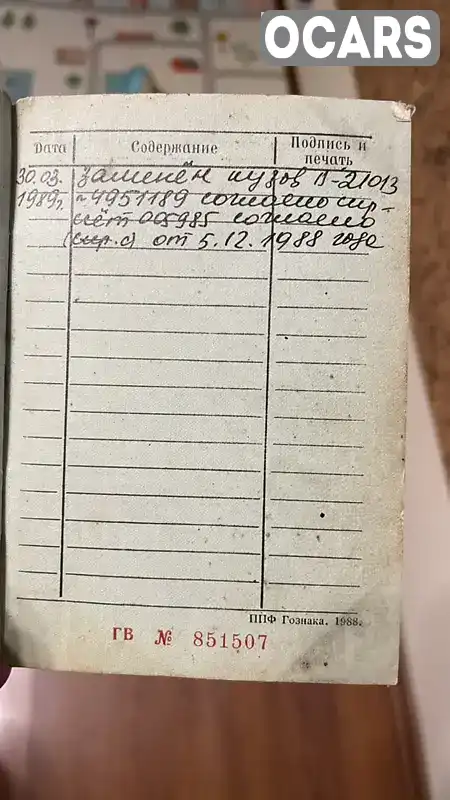 OCARS
Дата Содержание Подпись и печать
30.03. заменён кузов В-21013
1989г. 4951189 согласно
005985 согласно
от 5.12.1988 года
ППФ Гознака. 1988.
ГВ № 851507